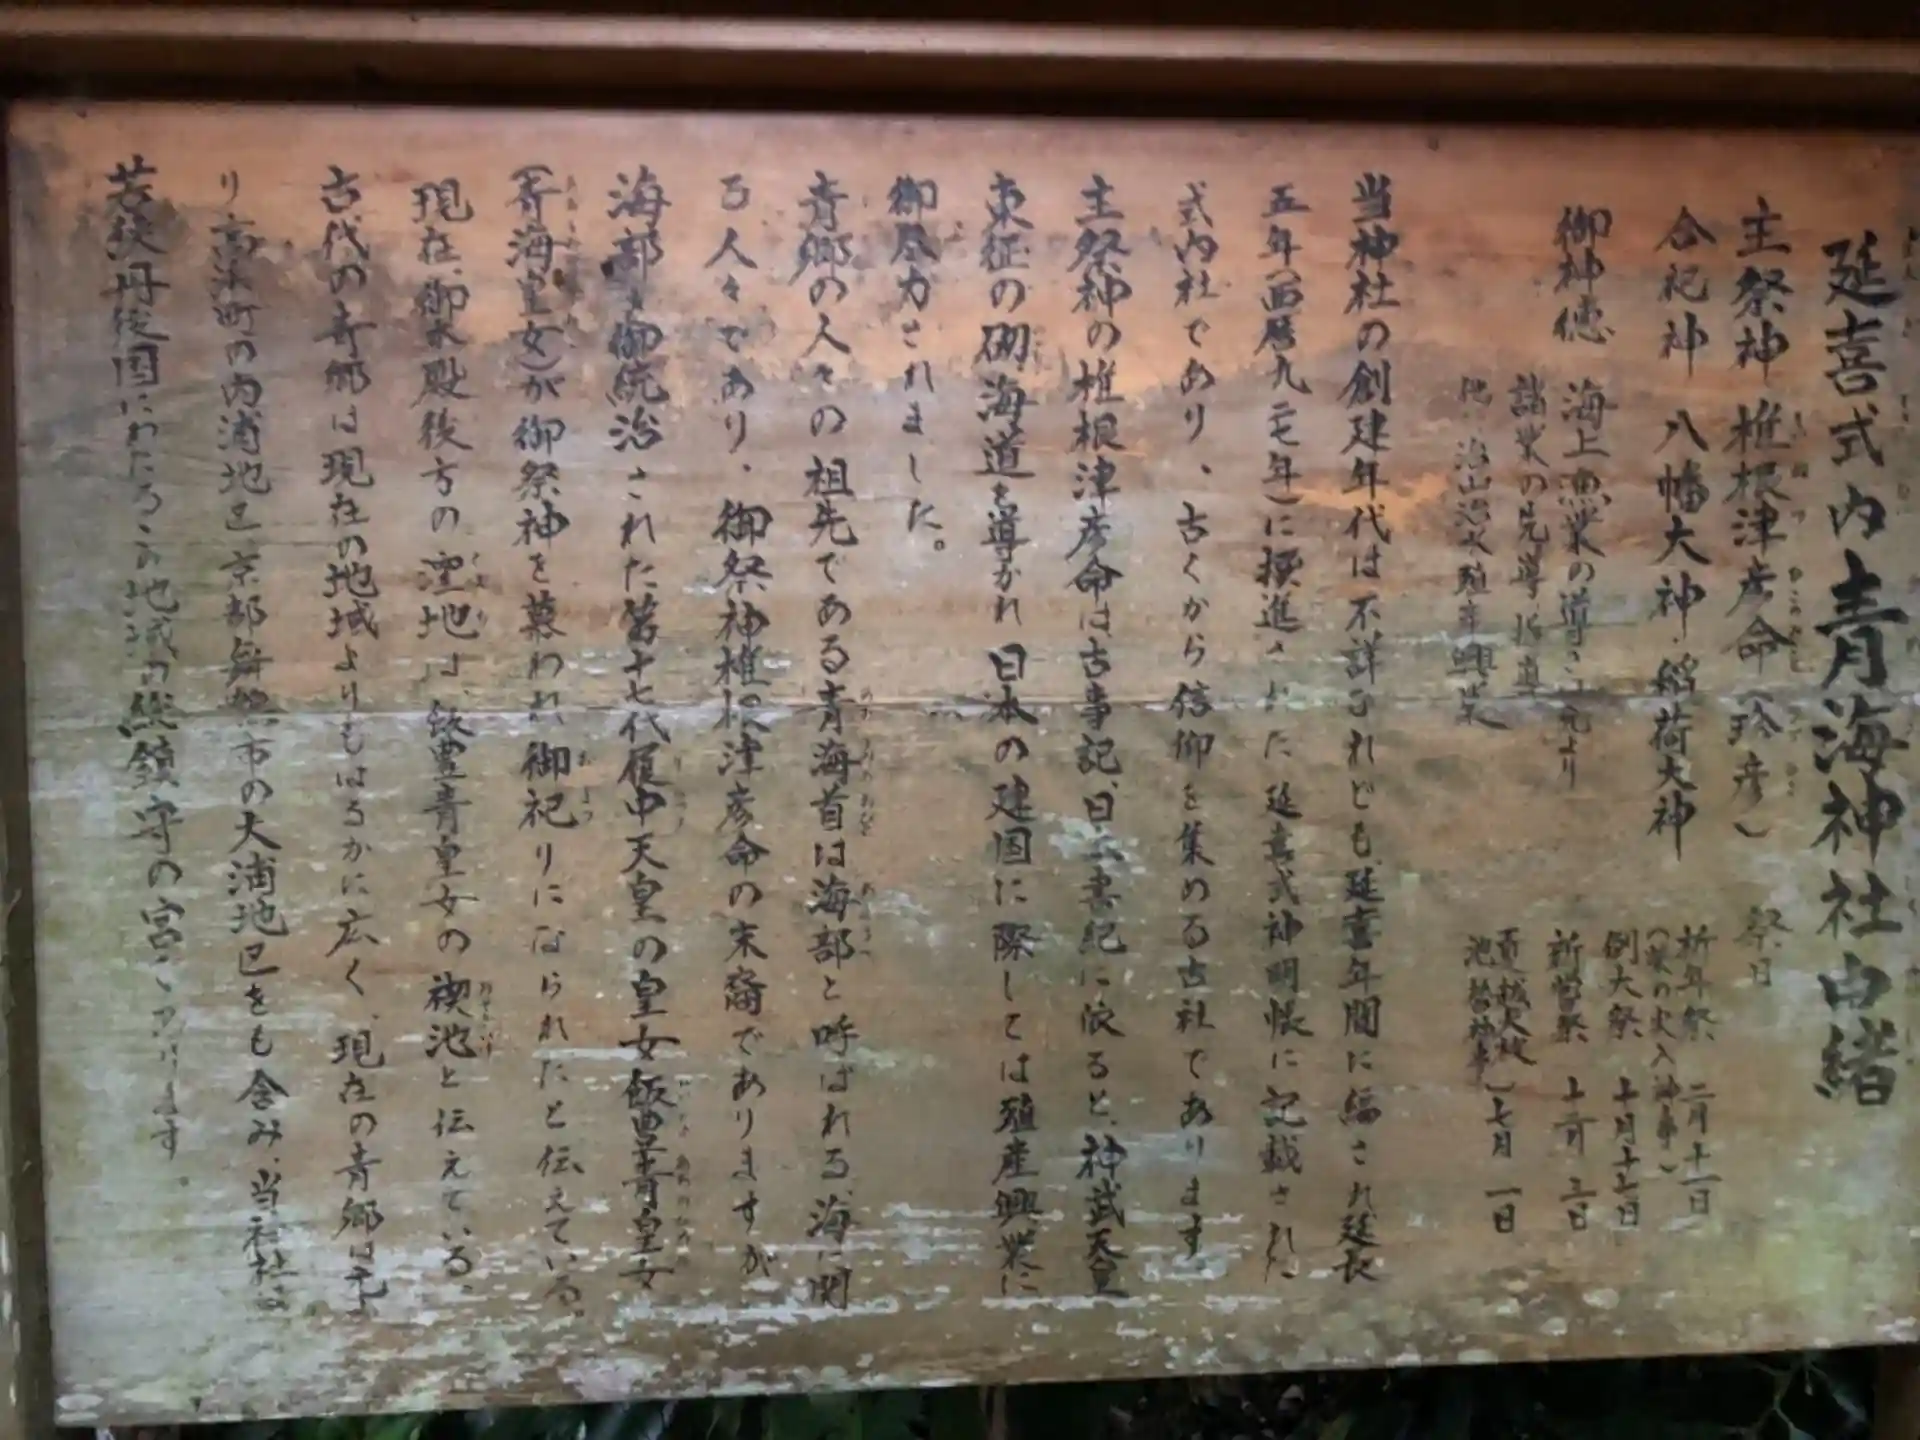 延喜式内青海神社由緒
主祭神 椎根津彦命（珍彦）
合祀神 八幡大神・稲荷大神
御神徳 海上漁業の導き元より
諸業の先導指導
他、治山治水殖産興業
祭日
祈年祭 二月十一日
（ の火入神事）
例大祭 十月十七日
新嘗祭 十一月 三日
夏越大祓
池替神事 七月 一日
当神社の創建年代は不詳なれども、延喜年間に編され延長
五年（西暦九二七年）に撰進された延喜式神明帳に記載された
式内社であり、古くから信仰を集める古社であります
主祭神の椎根津彦命は古事記、日本書紀に依ると、神武天皇
東征の砌海道を導かれ日本の建国に際しては殖産興業に
御尽力されました。
青郷の人々の祖先である青海首は海部と呼ばれる、海に関
る人々であり、御祭神椎根津彦命の末裔でありますが
海部を御統治された第十七代履中天皇の皇女飯豊青皇女
（青海皇女）が御祭神を慕われ御祀りになられたと伝えている。
現在、御本殿後方の窪地は、飯豊青皇女の禊池と伝えている、
古代の青郷は現在の地域よりもはるかに広く、現在の青郷は元よ
り高浜町の内浦地区京都舞鶴市の大浦地区をも含み、当社は
若狭丹後国にわたるこの地域の総鎮守の宮であります